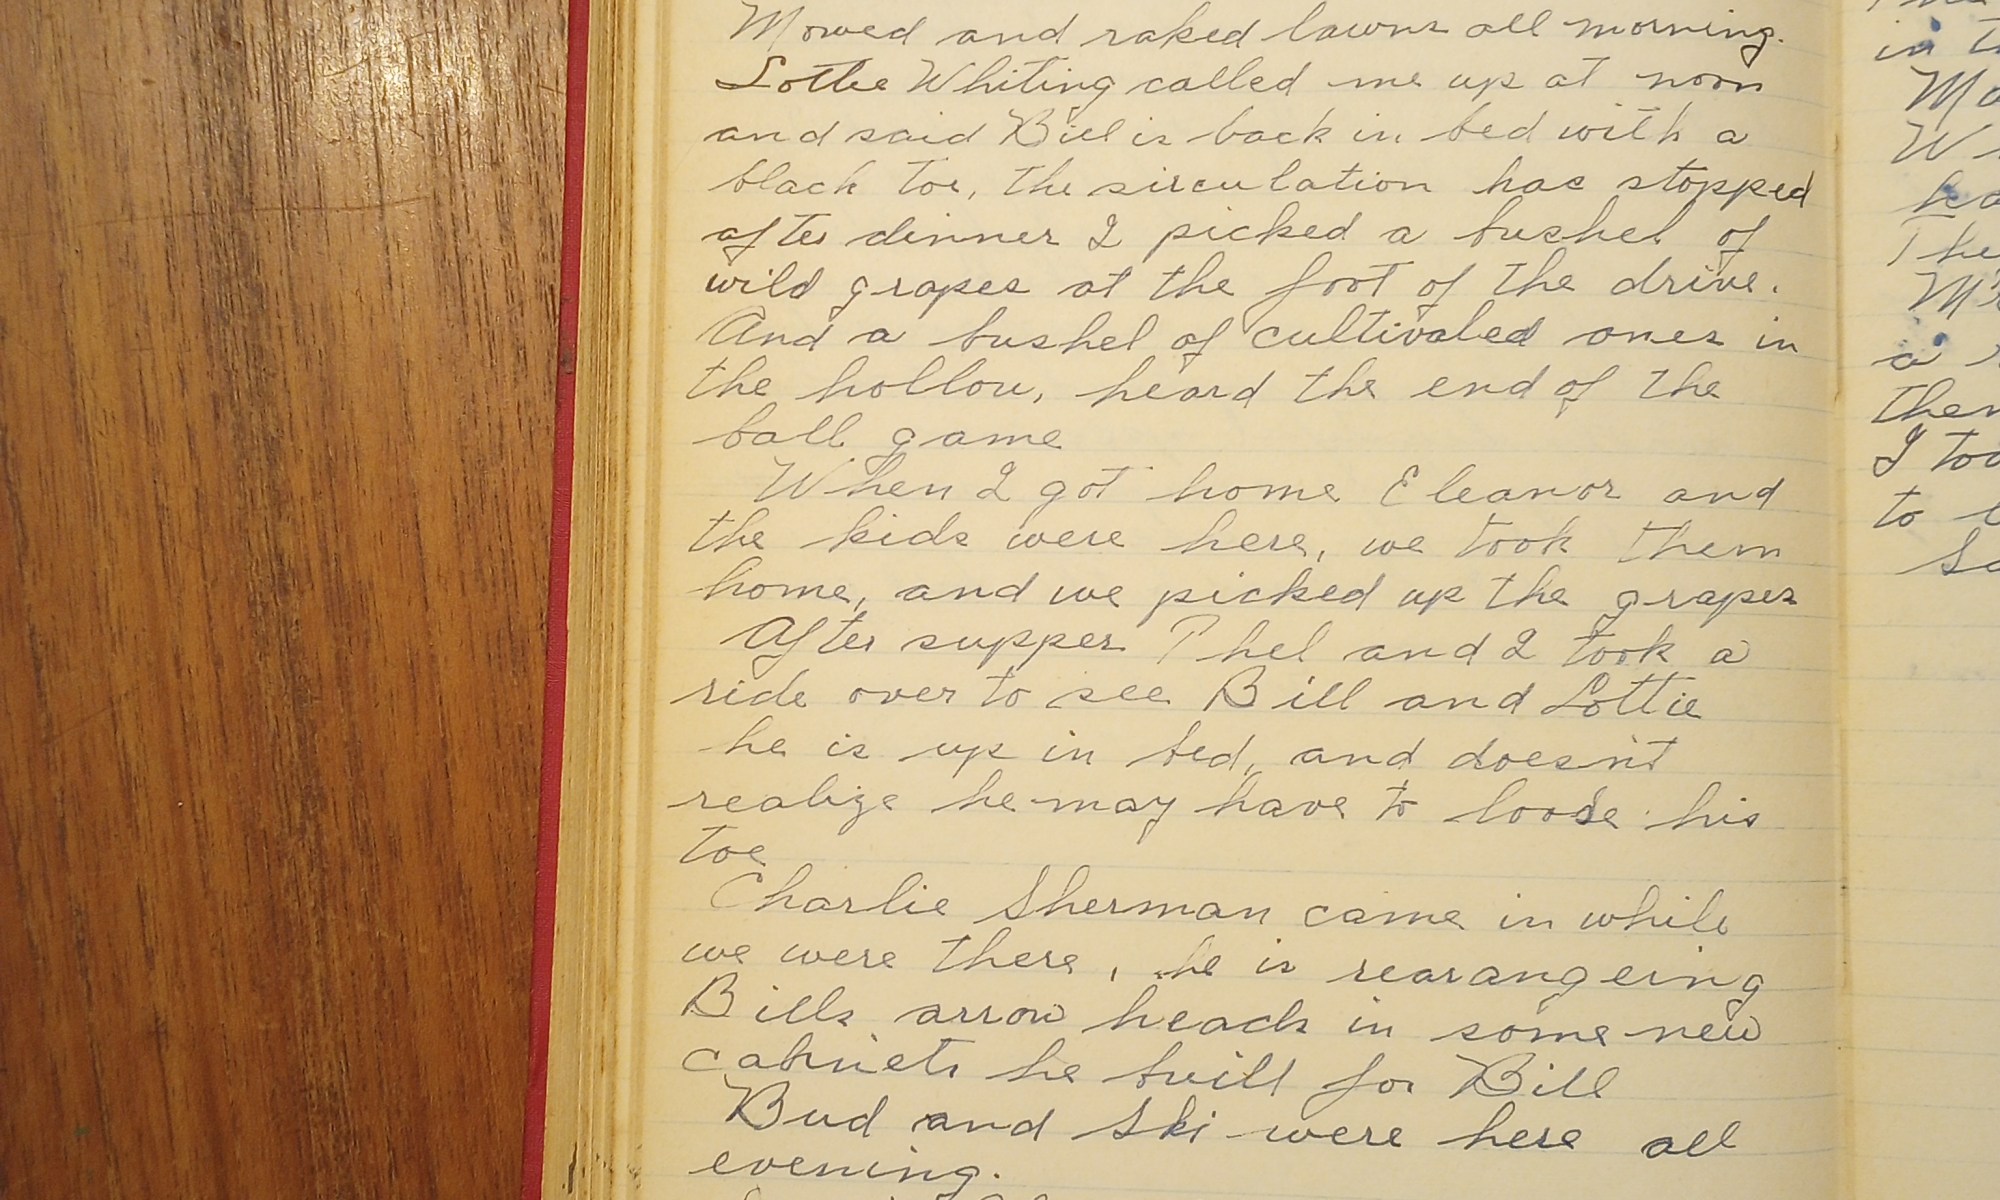 Mowed and raked lawns all morning.
Lottie Whiting called me up at noon
and said Bill is back in bed with a
black toe, the sirculation has stopped
after dinner I picked a bushel of
wild grapes at the foot of the drive.
And a bushel of cultivated ones in
the hollow, heard the end of the
ball game
When I got home Eleanor and
the kids were here, we took them
home, and we picked up the grapes
After supper Phel and I took a
ride over to see Bill and Lottie
he is up in bed, and doesn't
realize he may have to loose his
toe
Charlie Sherman came in while
we were there, he is rearangeing
Bills arrow heads in some new
cabinets he built for Bill
Bud and Ski were here all
evening.
in
Ma
W
ha
The
Mr
a
then
I too
to